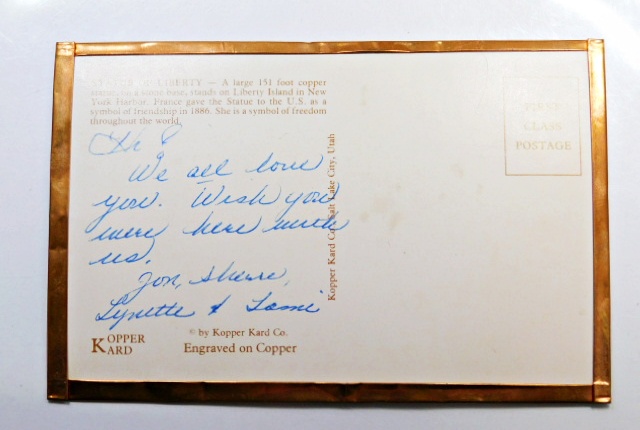 STATUE OF LIBERTY — A large 151 foot copper
statue, on a stone base, stands on Liberty Island in New
York Harbor. France gave the Statue to the U.S. as a
symbol of friendship in 1886. She is a symbol of freedom
throughout the world.
We all love
you. Wish you
were here with
us.
Jon,
Lynette &
FIRST
CLASS
POSTAGE
Kopper Kard Co. Salt Lake City, Utah
KOPPER
KARD
© by Kopper Kard Co.
Engraved on Copper